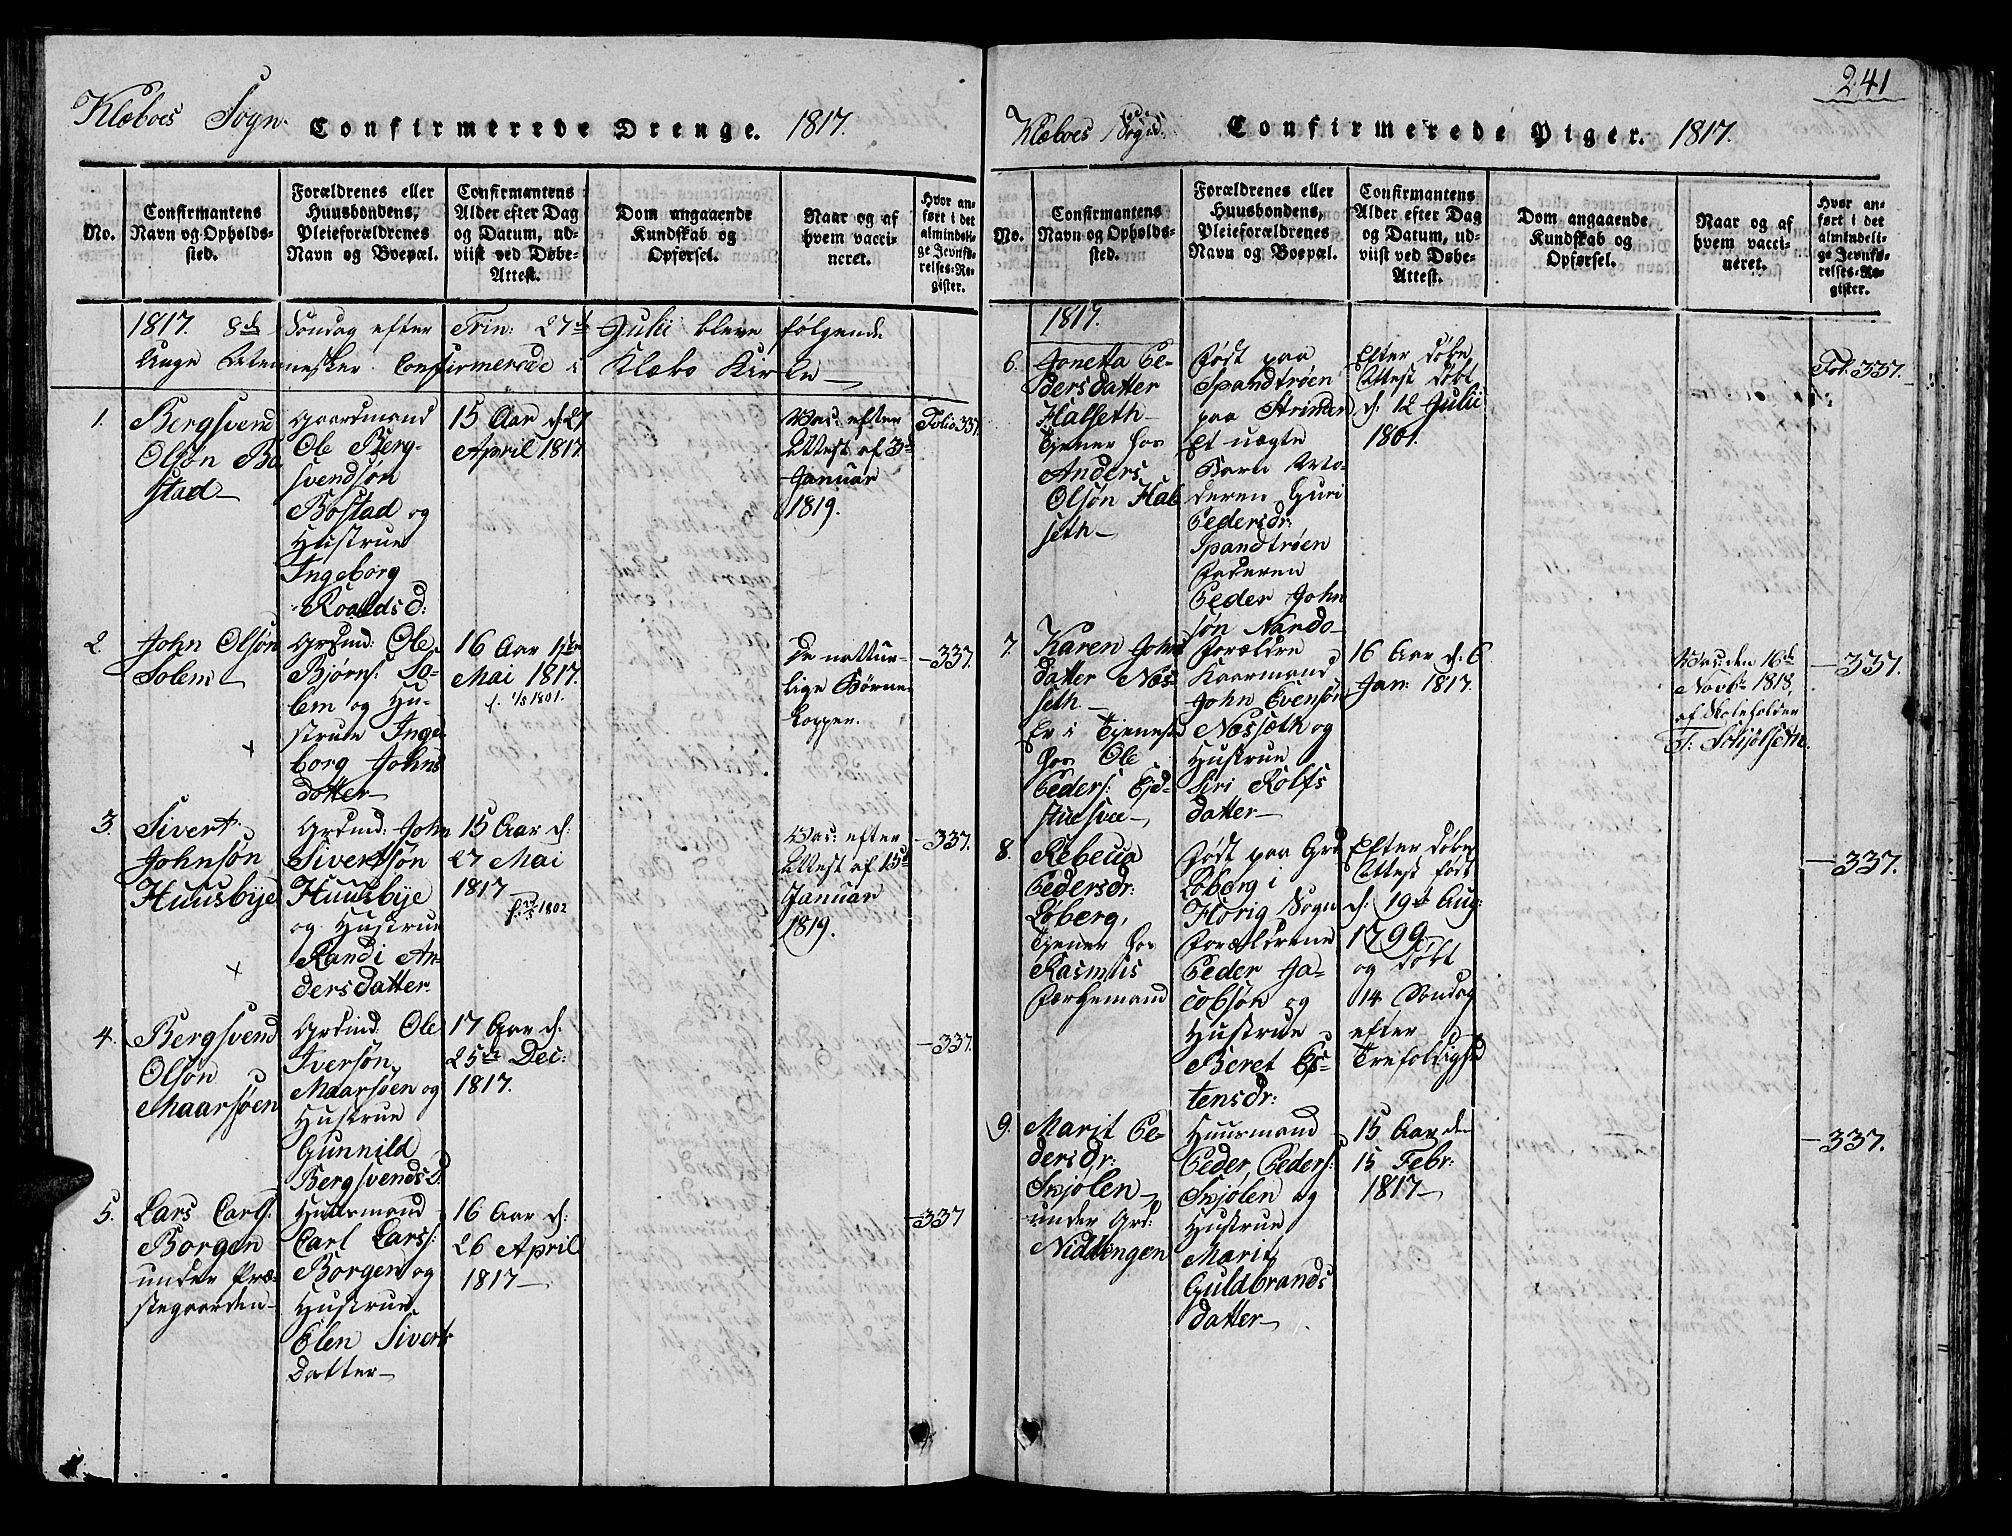 Klæboes Sogn. Confirmerede Drenge. 1817.
No.
Confirmantens
Navn og Opholds-
sted.
Forældrenes eller
Huusbondens,
Pleieforældrenes
Navn og Boepæl.
Confirmantens
Alder efter Dag
og Datum, ud-
viist ved Døbe-
Attest.
Dom angaaende
Kundskab og
Opførsel.
Naar og af
hvem vacci-
neret.
Hvor an-
ført i det
almindeli-
ge Jevnfø-
relses-Re-
gister.
1817. 8de Søndag efter Trin: 27de Julii bleve følgende
Unge Mennesker Confirmerede i Klæbo Kirke
1.
Bergsvend
Olsøn Bo
stad
Gaardmand
Ole Berg-
svendsøn
Bostad og
Hustrue
Ingeborg
Roaldsd:
15 Aar d. 27
April 1817
Vac: efter
Attest af 3de
Januar
1819.
Folio 337.
2.
John Olsøn
Solem
Grdmd: Ole
Bjørns: So-
lem og Hu-
strue Inge-
borg Johns
datter
16 Aar 1ste
Mai 1817.
f. 1/5 1801.
De nattur-
lige Børne
kopper.
337.
3.
Sivert
Johnsøn
Huusbye
Grdmd: John
Sivertsøn
Huusbye
og Hustrue
Randi An-
dersdatter.
15 Aar d:
27 Mai
1817
f. 27/5 1802
Vac: efter
Attest af 15de
Januar
1819.
337.
4.
Bergsvend
Olsøn
Maarsøen
Grdmd: Ole
Iversøn
Maarsøen og
Hustrue
Gunnild
Bergsvends D.
17 Aar d:
25de Dec:
1817.
337.
5.
Lars Carls:
Borgen
under Præ-
stegaarden
Huusmand
Carl Larss:
Borgen og
Hustrue
Elen Siverts
datter
16 Aar d:
26 April
1817
337
241
Klæboes Sogn. Confirmerede Piger. 1817.
No.
Confirmantens
Navn og Opholds-
sted.
Forældrenes eller
Huusbondens,
Pleieforældrenes
Navn og Boepæl.
Confirmantens
Alder efter Dag
og Datum, ud-
viist ved Døbe-
Attest.
Dom angaaende
Kundskab og
Opførsel.
Naar og af
hvem vacci-
neret.
Hvor an-
ført i det
almindeli-
ge Jevnfø-
relses-Re-
gister.
1817.
6.
Jonetta Pe-
dersdatter
Halseth
Tjener hos
Anders
Olsøn Hal
seth
Født paa
Spandtrøen
paa Strinden
Et uægte
Barn Mo-
deren Guri
Pedersdr:
Spandtrøen
Faderen
Peder John
søn Nardo
Efter Døbe
Attest døbt
d: 12 Julii
1801.
Fol. 337.
7.
Karen Johns
datter Næs-
seth
Er i Tjeneste
hos Ole
Peders:
Forældre
Kaarmand
John Evensøn
Næsseth og
Hustrue
Siri Rolfs
datter
16 Aar d: 6
Jan: 1817.
Vac: den 16de
Novbr 1818,
af Skoleholder
T: Schjølseth.
337.
8.
Rebecca
Pedersdr:
Løberg,
Tjener hos
Rasmus
Færgemand
Født paa Grd
Løberg i
Florig Sogn
Forældrene
Peder Ja-
cobsøn og
Hustrue
Beret Es-
tensdr:
Efter Døbe
Attest født
d: 19de Aug:
1799
og døbt
14 Søndag
efter
Trefoldighed
337.
9.
Marit Pe-
dersdr:
Skjølen
under Grd:
Nidtengen
Huusmand
Peder Peders:
Skjølen og
Hustrue
Marit
Guldbrands
datter
15 Aar den
15 Febr:
1817
337.